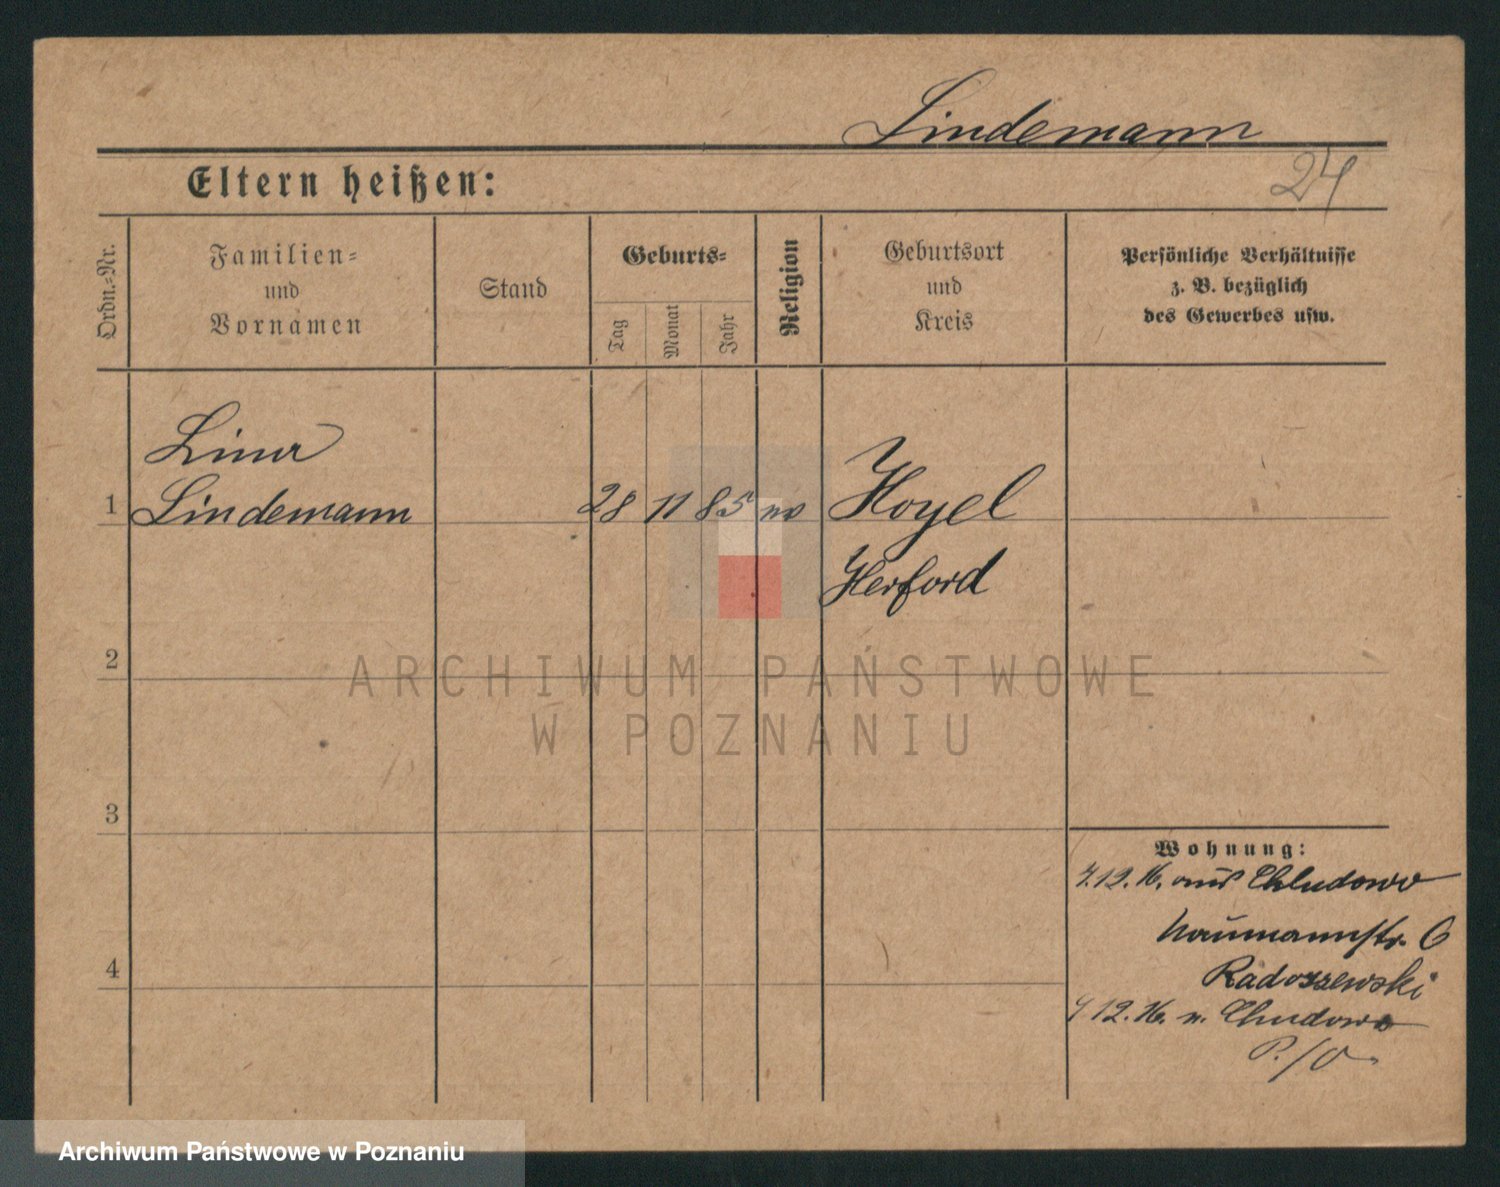 Lindemann
24
Eltern heißen:
Ordn.-Nr.
Familien-
und
Vornamen
Stand
Geburts-
Tag
Monat
Jahr
Religion
Geburtsort
und
Kreis
Persönliche Verhältnisse
z. B. bezüglich
des Gewerbes usw.
1
Lindemann
28 11 85
Hoyel
Herford
2
3
4
Wohnung:
12. 16. aus Chludowo
Naumannstr. 6
Radoszewski
12. 16. n. Chludowo
ARCHIWUM PAŃSTWOWE
W POZNANIU
Archiwum Państwowe w Poznaniu